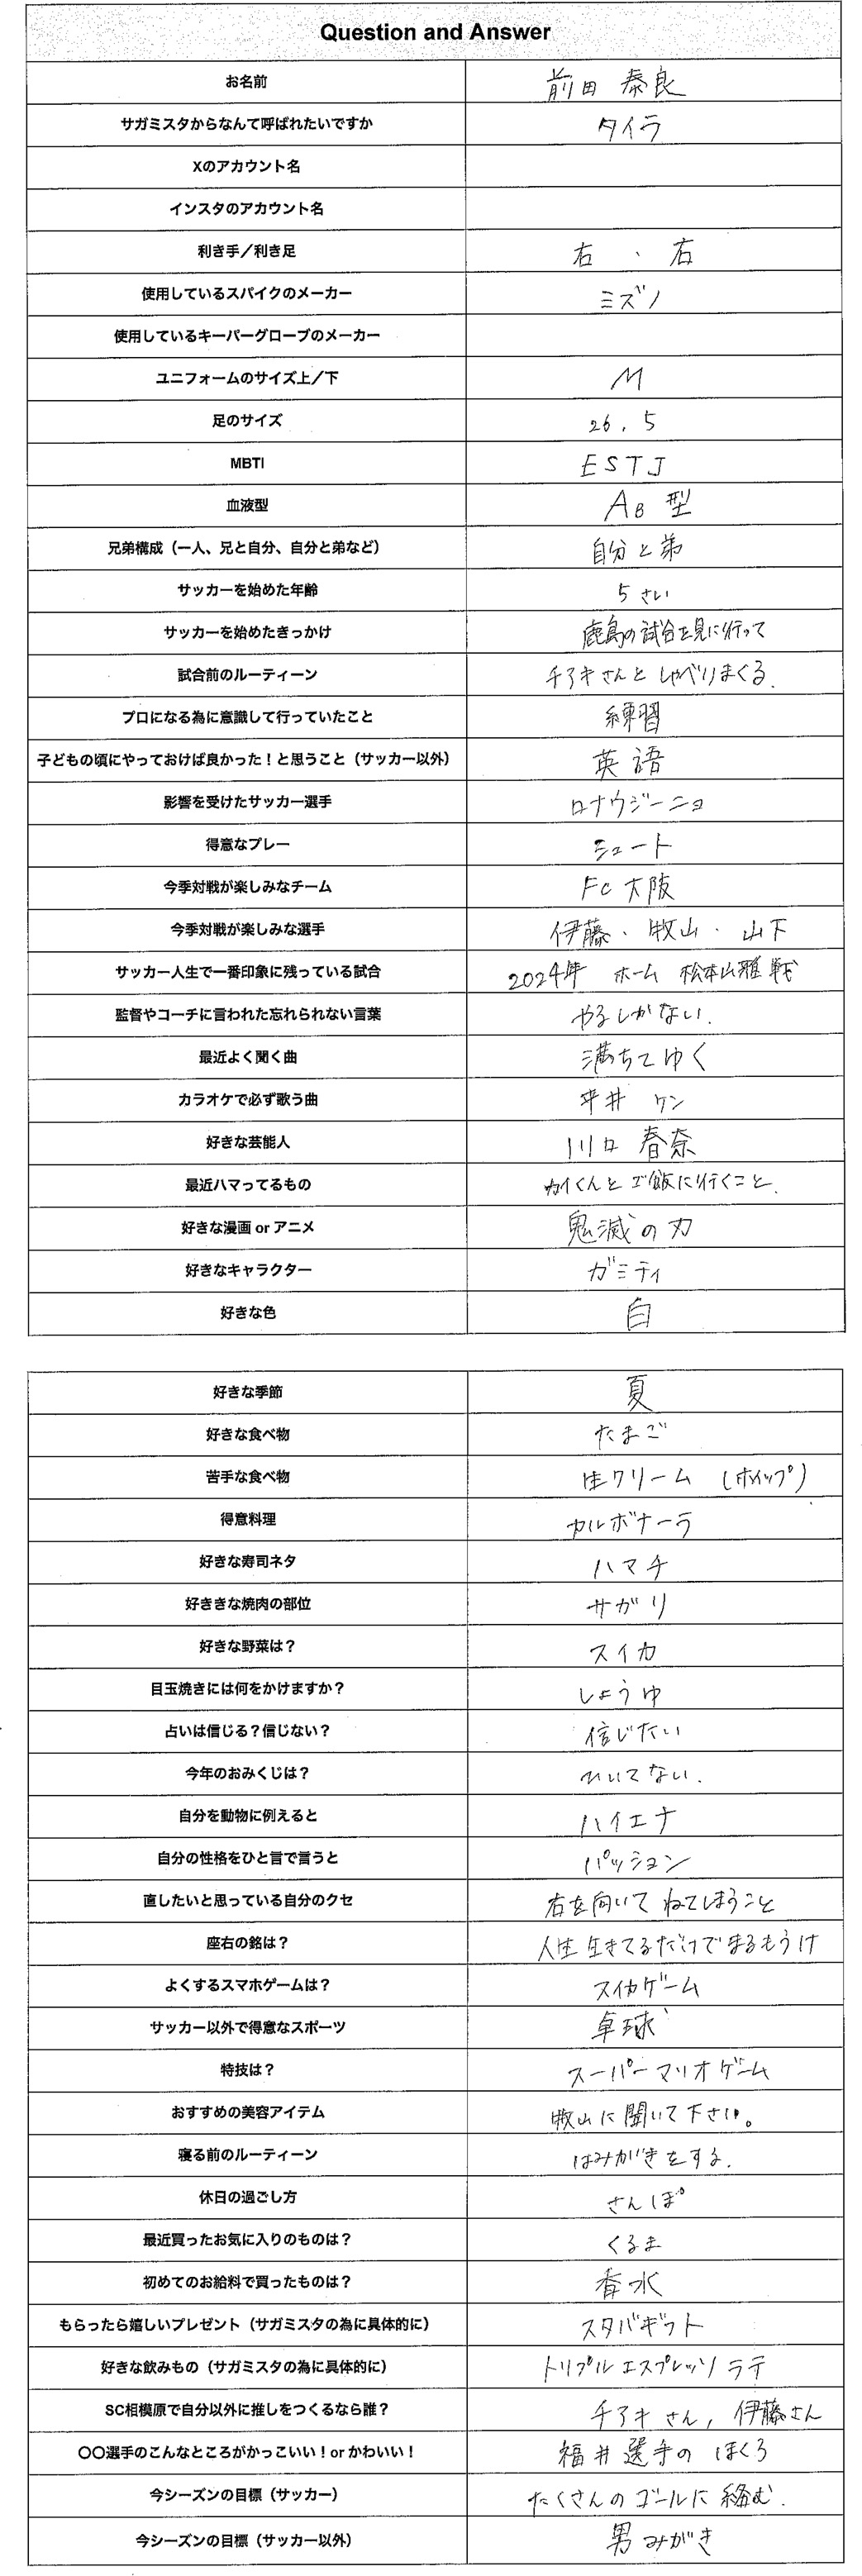 Question and Answer
お名前 前田 泰良
サガミスタからなんて呼ばれたいですか タイラ
Xのアカウント名
インスタのアカウント名
利き手/利き足 右 、 右
使用しているスパイクのメーカー ミズノ
使用しているキーパーグローブのメーカー
ユニフォームのサイズ上/下 M
足のサイズ 26.5
MBTI ESTJ
血液型 AB型
兄弟構成(一人、兄と自分、自分と弟など) 自分と弟
サッカーを始めた年齢 5さい
サッカーを始めたきっかけ 鹿島の試合を見に行って
試合前のルーティーン チアキさんとしゃべりまくる.
プロになる為に意識して行っていたこと 練習
子どもの頃にやっておけば良かった!と思うこと(サッカー以外) 英語
影響を受けたサッカー選手 ロナウジーニョ
得意なプレー シュート
今季対戦が楽しみなチーム FC大阪
今季対戦が楽しみな選手 伊藤・牧山・山下
サッカー人生で一番印象に残っている試合 2024年 ホーム 松本山雅戦
監督やコーチに言われた忘れられない言葉 やるしかない.
最近よく聞く曲 満ちてゆく
カラオケで必ず歌う曲 平井 ケン
好きな芸能人 川口 春奈
最近ハマってるもの カイくんとご飯に行くこと.
好きな漫画 or アニメ 鬼滅の刃
好きなキャラクター ガミティ
好きな色 白
好きな季節 夏
好きな食べ物 たまご
苦手な食べ物 生クリーム (ホイップ)
得意料理 カルボナーラ
好きな寿司ネタ ハマチ
好ききな焼肉の部位 サガリ
好きな野菜は? スイカ
目玉焼きには何をかけますか? しょうゆ
占いは信じる?信じない? 信じたい
今年のおみくじは? ひいてない.
自分を動物に例えると ハイエナ
自分の性格をひと言で言うと パッション
直したいと思っている自分のクセ 右を向いてねてしまうこと
座右の銘は? 人生生きてるだけでまるもうけ
よくするスマホゲームは? スイカゲーム
サッカー以外で得意なスポーツ 卓球
特技は? スーパーマリオゲーム
おすすめの美容アイテム 牧山に聞いて下さい。
寝る前のルーティーン はみがきをする.
休日の過ごし方 さんぽ
最近買ったお気に入りのものは? くるま
初めてのお給料で買ったものは? 香水
もらったら嬉しいプレゼント(サガミスタの為に具体的に) スタバギフト
好きな飲みもの(サガミスタの為に具体的に) トリプルエスプレッソラテ
SC相模原で自分以外に推しをつくるなら誰? チアキさん, 伊藤さん
〇〇選手のこんなところがかっこいい!or かわいい! 福井選手のほくろ
今シーズンの目標(サッカー) たくさんのゴールに絡む.
今シーズンの目標(サッカー以外) 男みがき